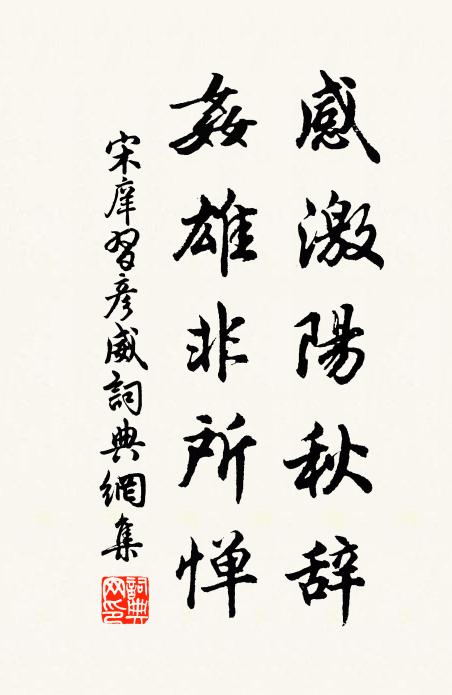 感激陽秋辞
姦雄非所惮
宋庠習彦威詞典網集
詞典網印